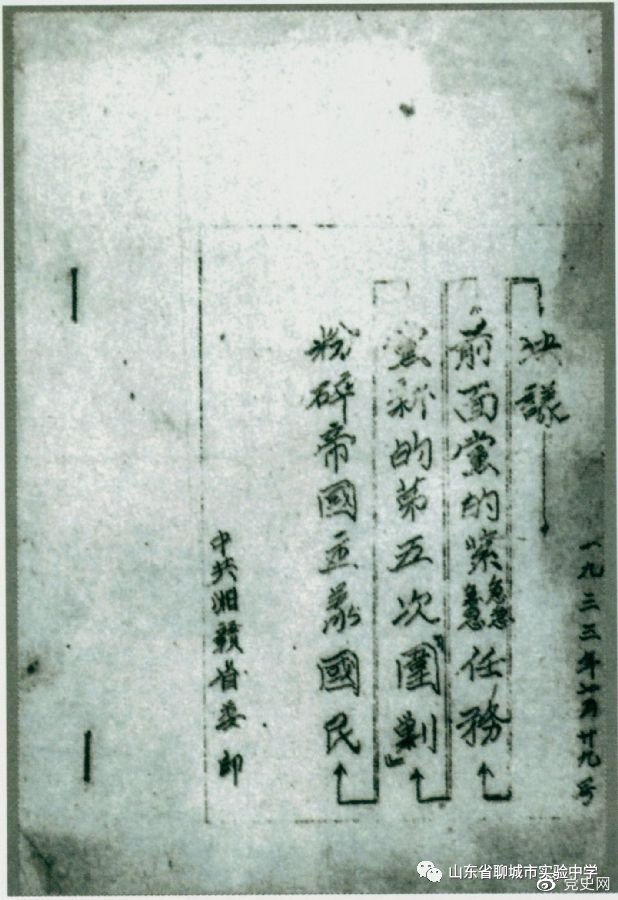 中共湘贛省委印
粉碎帝國主義國民
黨新的第五次『圍剿』
前面黨的緊急任務
决議
一九三三年七月廿九号
山东省聊城市实验中学
党史网